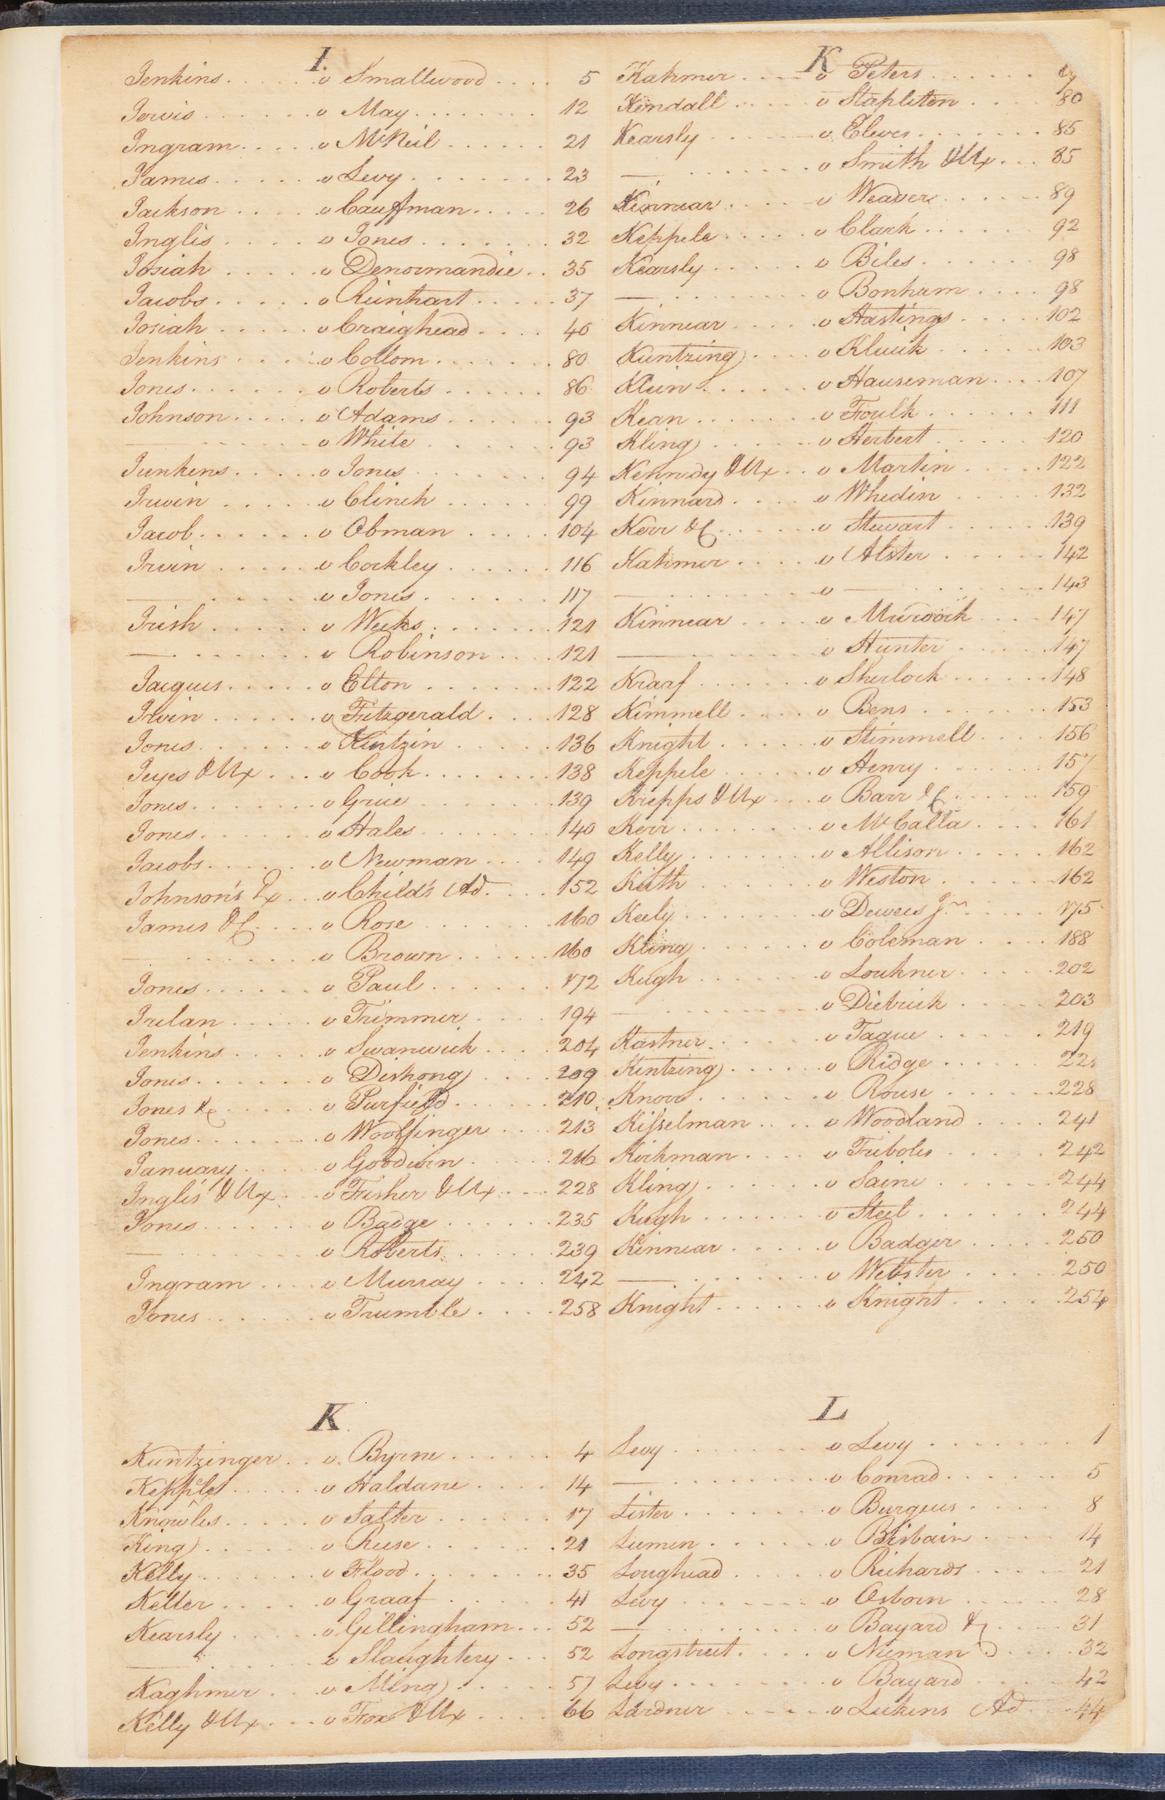 I.
Jenkins v Smallwood 5
Jervis v May 12
Ingram v McNeil 21
James v Levy 23
Jackson v Cauffman 26
Inglis v Jones 32
Josiah v Denormandie 35
Jacobs v Rinehart 37
Josiah v Craighead 40
Jenkins v Collom 80
Jones v Roberts 86
Johnson v Adams 93
v White 93
Junkens v Jones 94
Irwin v Clinch 99
Jacob v Obman 104
Irvin v Cockley 116
— v Jones 117
Irish v Weeks 121
— v Robinson 121
Jacques v Elton 122
Irvin v Fitzgerald 128
Jones v Kintzin 136
Jeyes & Ux v Cook 138
Jones v Grice 139
Jones v Hales 140
Jacobs v Newman 149
Johnson's Ex v Child's Ad 152
James &c v Rose 160
— v Brown 160
Jones v Paul 172
Irelan v Trimmer 194
Jenkins v Swanwick 204
Jones v Dishong 209
Jones &c v Purfield 210
Jones v Woolfinger 213
January v Goodwin 216
Inglis & Ux v Fisher & Ux 228
Jones v Badge 235
— v Roberts 239
Ingram v Murray 242
Jones v Trumble 258
K
Kuntzinger v Byrne 4
Kepple v Haldane 14
Knowles v Salter 17
King v Reese 21
Kelly v Flood 35
Keller v Graaf 41
Kearsly v Gillingham 52
— v Slaughtery 52
Kaghmer v Ming 57
Kelly & Ux v Fox & Ux 66
K
Kahmer v Peters
Kendall v Stapleton 80
Kearsly v Elwes 85
— v Smith & Ux 85
Kinnear v Weaver 89
Keppele v Clark 92
Kearsly v Biles 98
— v Bonham 98
Kinnear v Hastings 102
Kuntzing v Kluik 103
Klein v Hauseman 107
Kean v Foulk 111
Kling v Herbert 120
Kennedy & Ux v Martin 122
Kinnard v Whedin 132
Kerr &c v Stewart 139
Kahmer v Alster 142
— v — 143
Kinnear v Murdock 147
— v Hunter 147
Kraof v Sherlock 148
Kimmell v Bens 153
Knight v Stimmell 156
Keppele v Henry 157
Krepps & Ux v Barr &c 159
Kerr v McCalla 161
Kelly v Allison 162
Keith v Weston 162
Keely v Dewees Jr 175
Kling v Coleman 188
Kugh v Louhner 202
— v Dietrich 203
Kastner v Tague 219
Kintzing v Ridge
Knorr v Rouse 228
Kisselman v Woodland 241
Kirkman v Tribolis 242
Kling v Saine 244
Kugh v Steel 244
Kinnear v Badger 250
— v Webster 250
Knight v Knight 254
L
Levy v Levy 1
— v Conrad 5
Lister v Burgess 8
Lumen v Brisbain 14
Loughead v Richards 21
Levy v Osborn 28
— v Bayard &c 31
Longstreet v Nieman 32
Levy v Bayard 42
Lardner v Lukens Ad 44